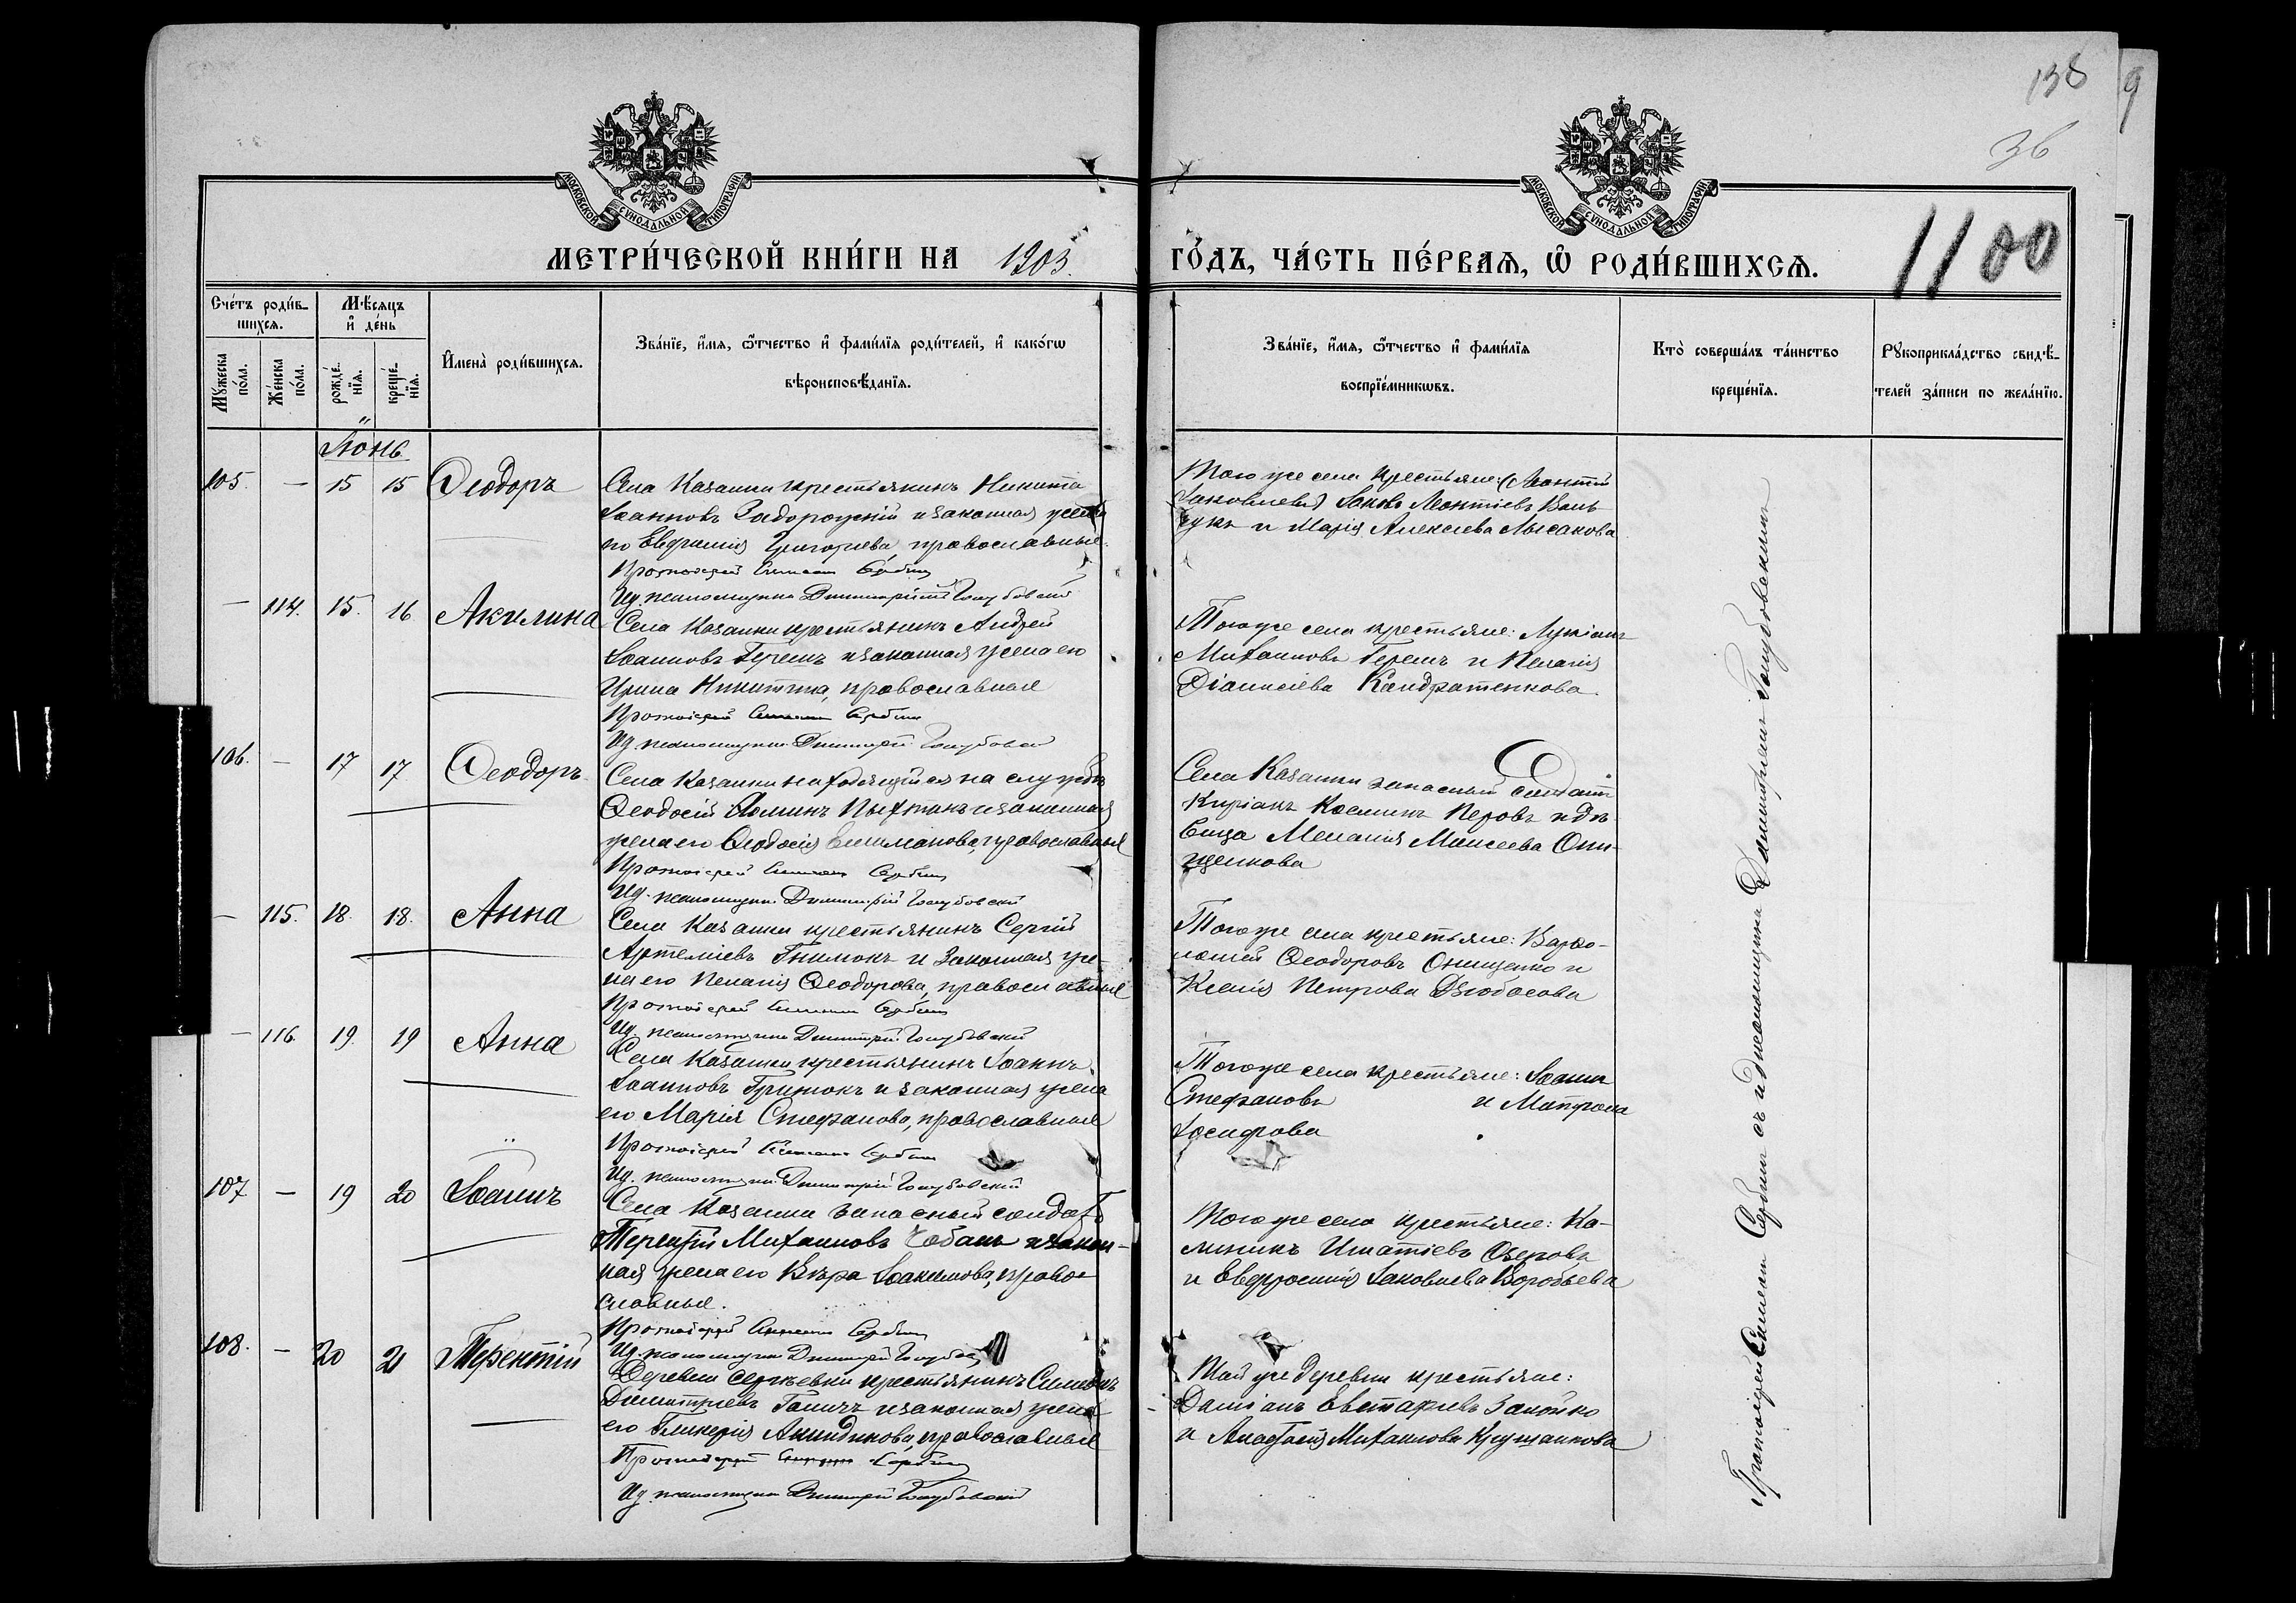 138
9
36
МОСКОВСКОЙ СѴНОДАЛЬНОЙ ТИПОГРАФІИ
МОСКОВСКОЙ СѴНОДАЛЬНОЙ ТИПОГРАФІИ
МЕТРИ́ЧЕСКОЙ КНИ́ГИ НА 1903. ГО́ДЪ, ЧА́СТЬ ПЕ́РВАѦ, Ѽ РОДИ́ВШИХСѦ.
1100
Сче́тъ роди́в-
шихсѧ.
Мꙋжеска по́ла.
Же́нска по́ла.
Мѣ́сѧцъ и҆ де́нь
рожде́нїѧ.
креще́нїѧ.
И҆мена̀ роди́вшихсѧ.
Зва́нїе, и҆́мѧ, ѻ҆́тчество и҆ фами́лїѧ роди́телей, и҆ како́гѡ
вѣроисповѣ́данїѧ.
Зва́нїе, и҆́мѧ, ѻ҆́тчество и҆ фами́лїѧ
воспрїе́мникѡвъ.
Кто̀ соверша́лъ та́инство
креще́нїѧ.
Рꙋкоприкла́дство свидѣ́-
телей за́писи по жела́нїю.
Іюнь
105. — 15 15 Ѳеодоръ
Села Казанки крестьянинъ Никита
Іоанновъ Задорожній и законная жена
его Евфимія Григорьева, православные.
Протоіерей Симеон Сербин
Ид. псаломщика Димитрій Голубовскій
Того же села крестьяне: (Леонтій
Іаковлевъ) Іаковъ Леонтіевъ
и Марія Алексѣева Лысакова
— 114. 15. 16 Акилина
Села Казанки крестьянинъ Андрей
Іоанновъ Терень и законная жена его
Ирина Никитина, православные
Протоіерей Симеон Сербин
Ид. псаломщика Димитрій Голубовскій
Того же села крестьяне: Лукіанъ
Михаиловъ Терень и Пелагія
Діонисіева Кандратенкова.
106. — 17 17 Ѳеодоръ
Села Казанки находящійся на службѣ
Ѳеодосій и законная
жена его Ѳеодосія православные
Протоіерей Симеон Сербин
Ид. псаломщика Димитрій Голубовскій
Села Казанки запасный солдатъ
Киріакъ Косминъ Перовъ и дѣ-
вица Меланія Моисеева Они-
щенкова
— 115. 18. 18. Анна
Села Казанки крестьянинъ Сергій
Артеміевъ и законная же-
на его Пелагія Ѳеодорова, православные
Протоіерей Симеон Сербин
Ид. псаломщика Димитрій Голубовскій
Того же села крестьяне: Варѳо-
ломей Ѳеодоровъ Онищенко и
Ксенія Петрова Дзюбасова
— 116. 19. 19 Анна
Села Казанки крестьянинъ Іоаннъ
Іоанновъ и законная жена
его Марія Стефанова, православные
Протоіерей Симеон Сербин
Ид. псаломщика Димитрій Голубовскій
Того же села крестьяне: Іоаннъ
Стефановъ и Матрона
Іосифова
107 — 19 20 Іоаннъ
Села Казанки запасный солдатъ
Терентій Михаиловъ Чобанъ и закон-
ная жена его Вѣра Іоакимова, право-
славные.
Протоіерей Симеон Сербин
Ид. псаломщика Димитрій
Того же села крестьяне: Ка-
линикъ Игнатіевъ Озеровъ
и Евфросинія Іаковлева Воробьева
108. — 20 21 Терентій
Деревни Сергѣевки крестьянинъ Симеонъ
Димитріевъ Ганичъ и законная жена
его Гликерія Акиндинова, православные
Протоіерей Симеон Сербин
Ид. псаломщика Димитрій Голубовскій
Той же деревни крестьяне:
Даміанъ Евстафіевъ
и Анастасія Михаилова
Протоіерей Симеон Сербин съ и д псаломщика Димитріем Голубовскимъ